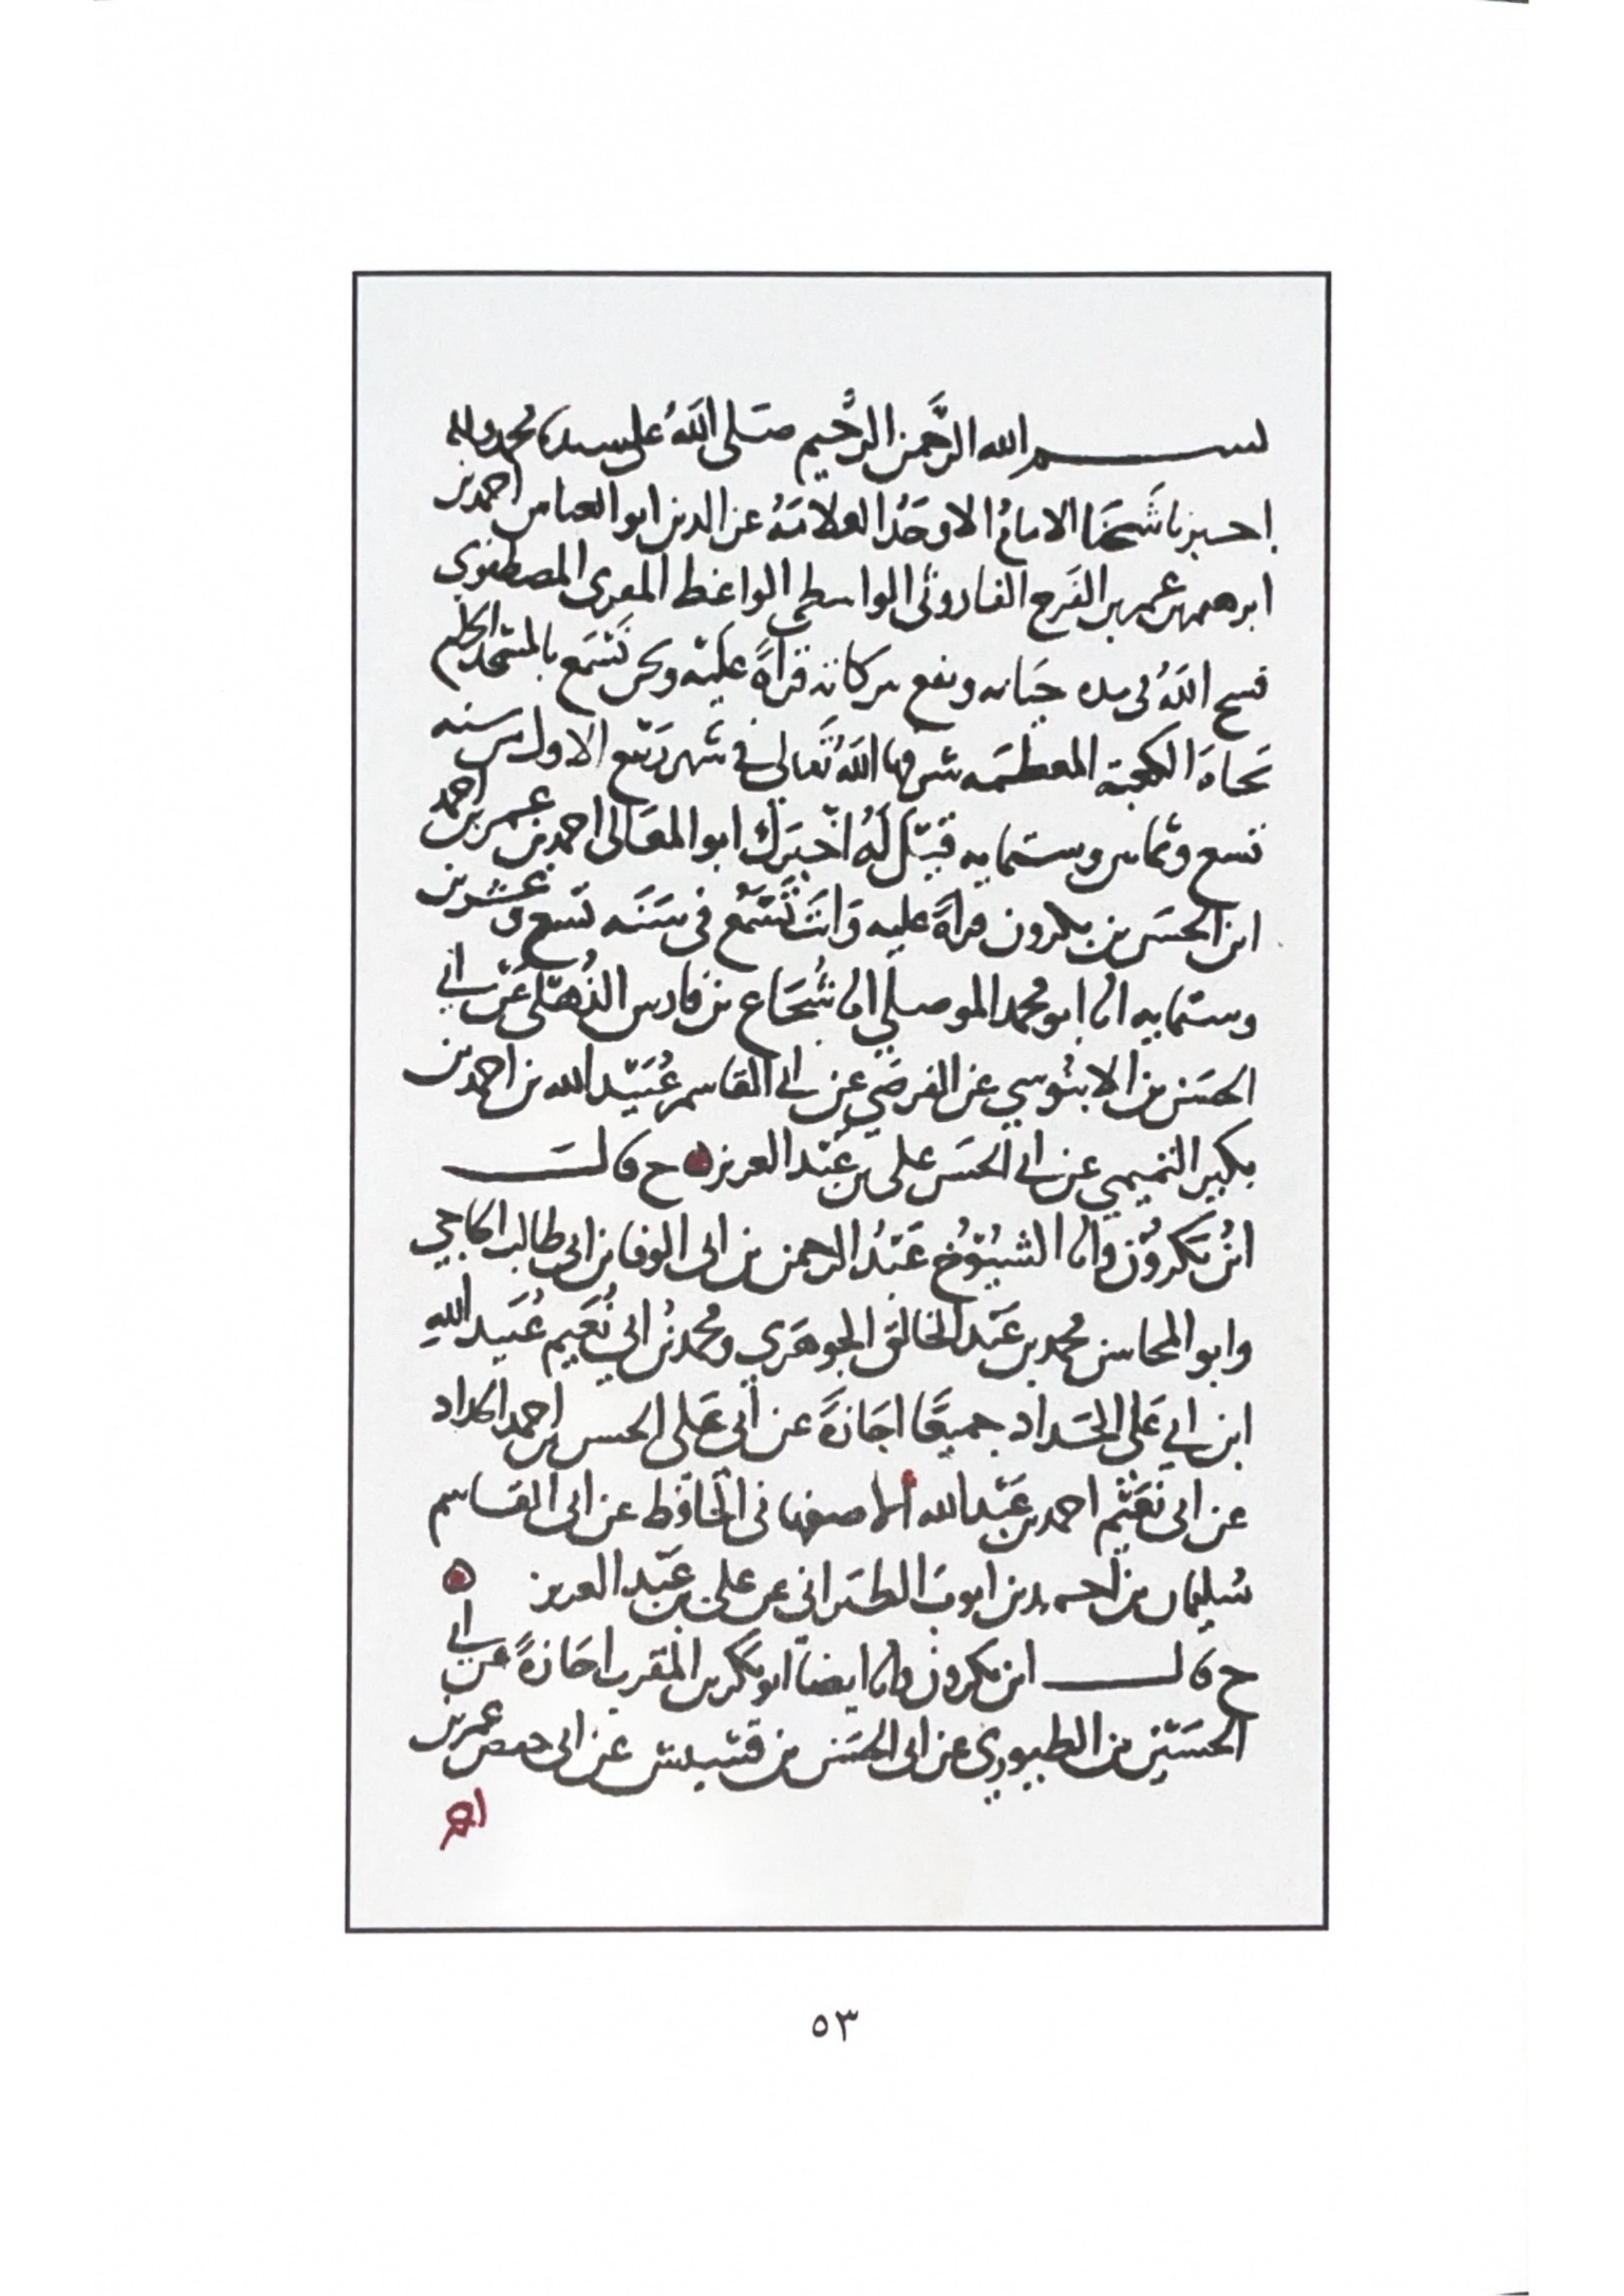 بسم الله الرَّحمن الرَّحيم صَلى اللَّهُ على سيدنا محمد واله
اخبرنا شَيخنَا الامامُ الاوحَدُ العلامَهُ عز الدين ابو العباس احمد بن
ابرهيم بن عمر بن الفَرج الفاروثى الواسطى الواعظ المقرى المصطفوي
فسح اللَّهُ فى مده حيَاته ونفع ببركاته قراةً عليْه ونحن نَسْمَع بالمسْجد الحرام
تجاهَ الكعبة المعظمَه شرفها اللَّهُ تَعالى في شهر ربيْع الاول من سنه
تسع وثمانين وستمايه قيْل لَهُ اخْبَرَك ابو المعَالى احمد بن عمر بن احمد
ابن الحسَن بن بكرون قراةً عليه وَانتَ تَسْمَعُ فى سَنَه تسْع وعشرين
وستمايه انا ابو محمد الموصلي انا شُجَاع بن فارس الذُهْلى عَنْ ابي
الحسَن بن الابنُوسي عن الفرضي عن ابي القاسم عُبَيْد الله بن احمد بن
بكير التميمي عن ابي الحسَن على بن عَبْد العزيز ه ح قالَ
ابنُ بَكروُن وانا الشيُوُخ عَبْدُ الرحمن بن ابى الوفا بن ابي طالب الحاجي
وابو المحاسن محمد بن عَبْد الخالق الجوهَري ومحمد بنُ ابي نُعَيم عُبَيد اللهِ
ابن ابي عَلى الحَداد جميعًا اجَازةً عن أبى عَلى الحسن بن احمد الحداد
عن ابى نُعَيْم احمد بن عَبْد الله الاصفهانى الحَافظ عن ابى القاسم
سُليمان بن احمد بن ايوبَ الطبَرانى عن على بن عَبْد العزيز ه
ح قال ابن بكرون وانا ايضاً ابو بَكر بن المقرب اجَازةً عن ابي
الحسَيْن بن الطيوري عن ابى الحسَن بن قشيش عن ابى حفص عمر بن
احمد
٥٣